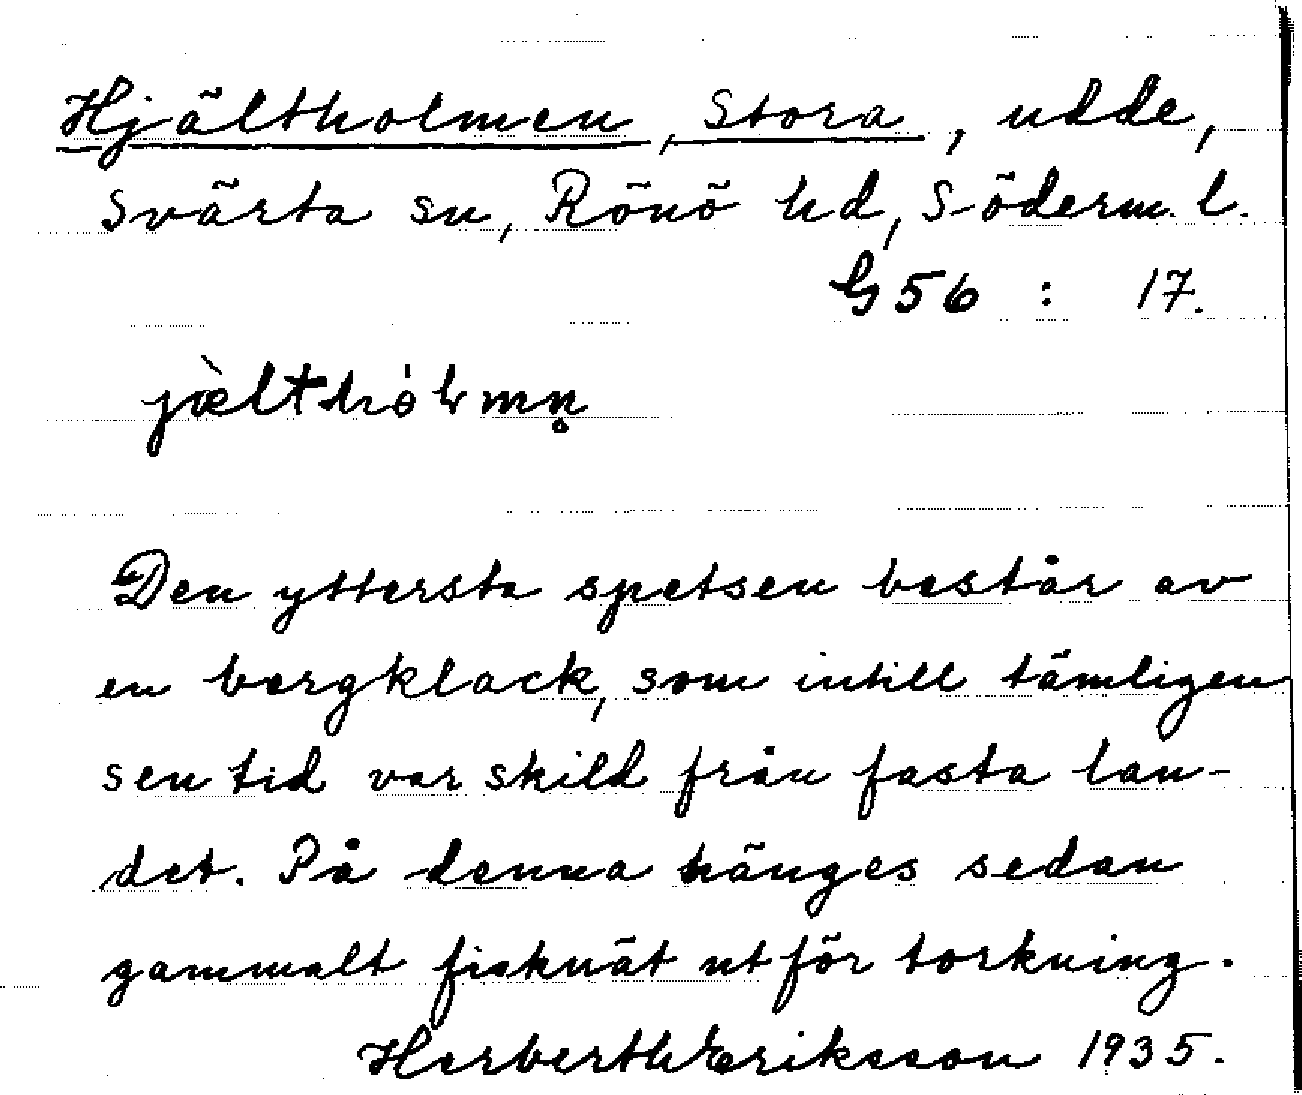 Hjältholmen, Stora, udde,
Svärta sn, Rönö hd, Söderm. l.
G 56 : 17.
Den yttersta spetsen består av
en bergklack, som intill tämligen
sen tid var skild från fasta lan-
det. På denna hänges sedan
gammalt fisknät ut för torkning.
Herberth Eriksson 1935.